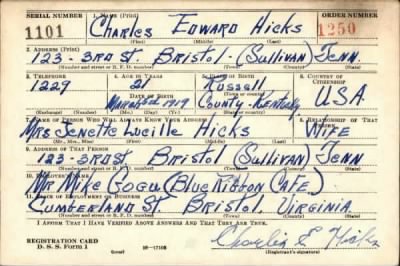 SERIAL NUMBER 1. NAME (Print) ORDER NUMBER
1101 Charles Edward Hicks 1250
(First) (Middle) (Last)
2. ADDRESS (Print)
123 - 3rd St. Bristol - (Sullivan) Tenn.
(Number and street or R. F. D. number) (Town) (County) (State)
3. TELEPHONE 4. AGE IN YEARS 5. PLACE OF BIRTH 6. COUNTRY OF CITIZENSHIP
1229 21 Russell
DATE OF BIRTH County - Kentucky U.S.A.
March 1919
(Exchange) (Number) (Mo.) (Day) (Yr.) (State or country)
7. NAME OF PERSON WHO WILL ALWAYS KNOW YOUR ADDRESS 8. RELATIONSHIP OF THAT PERSON
Mrs Jenette Lucille Hicks Wife
(Mr., Mrs., Miss) (First) (Middle) (Last)
9. ADDRESS OF THAT PERSON
123 - 3rd St Bristol (Sullivan) Tenn
(Number and street or R. F. D. number) (Town) (County) (State)
10. EMPLOYER'S NAME
Mr Mike (Blue Ribbon Cafe)
11. PLACE OF EMPLOYMENT OR BUSINESS
Cumberland St. Bristol, Virginia
(Number and street or R. F. D. number) (Town) (County) (State)
I AFFIRM THAT I HAVE VERIFIED ABOVE ANSWERS AND THAT THEY ARE TRUE.
REGISTRATION CARD
D. S. S. Form 1 (over) 16-17105 Charlie E Hicks
(Registrant's signature)